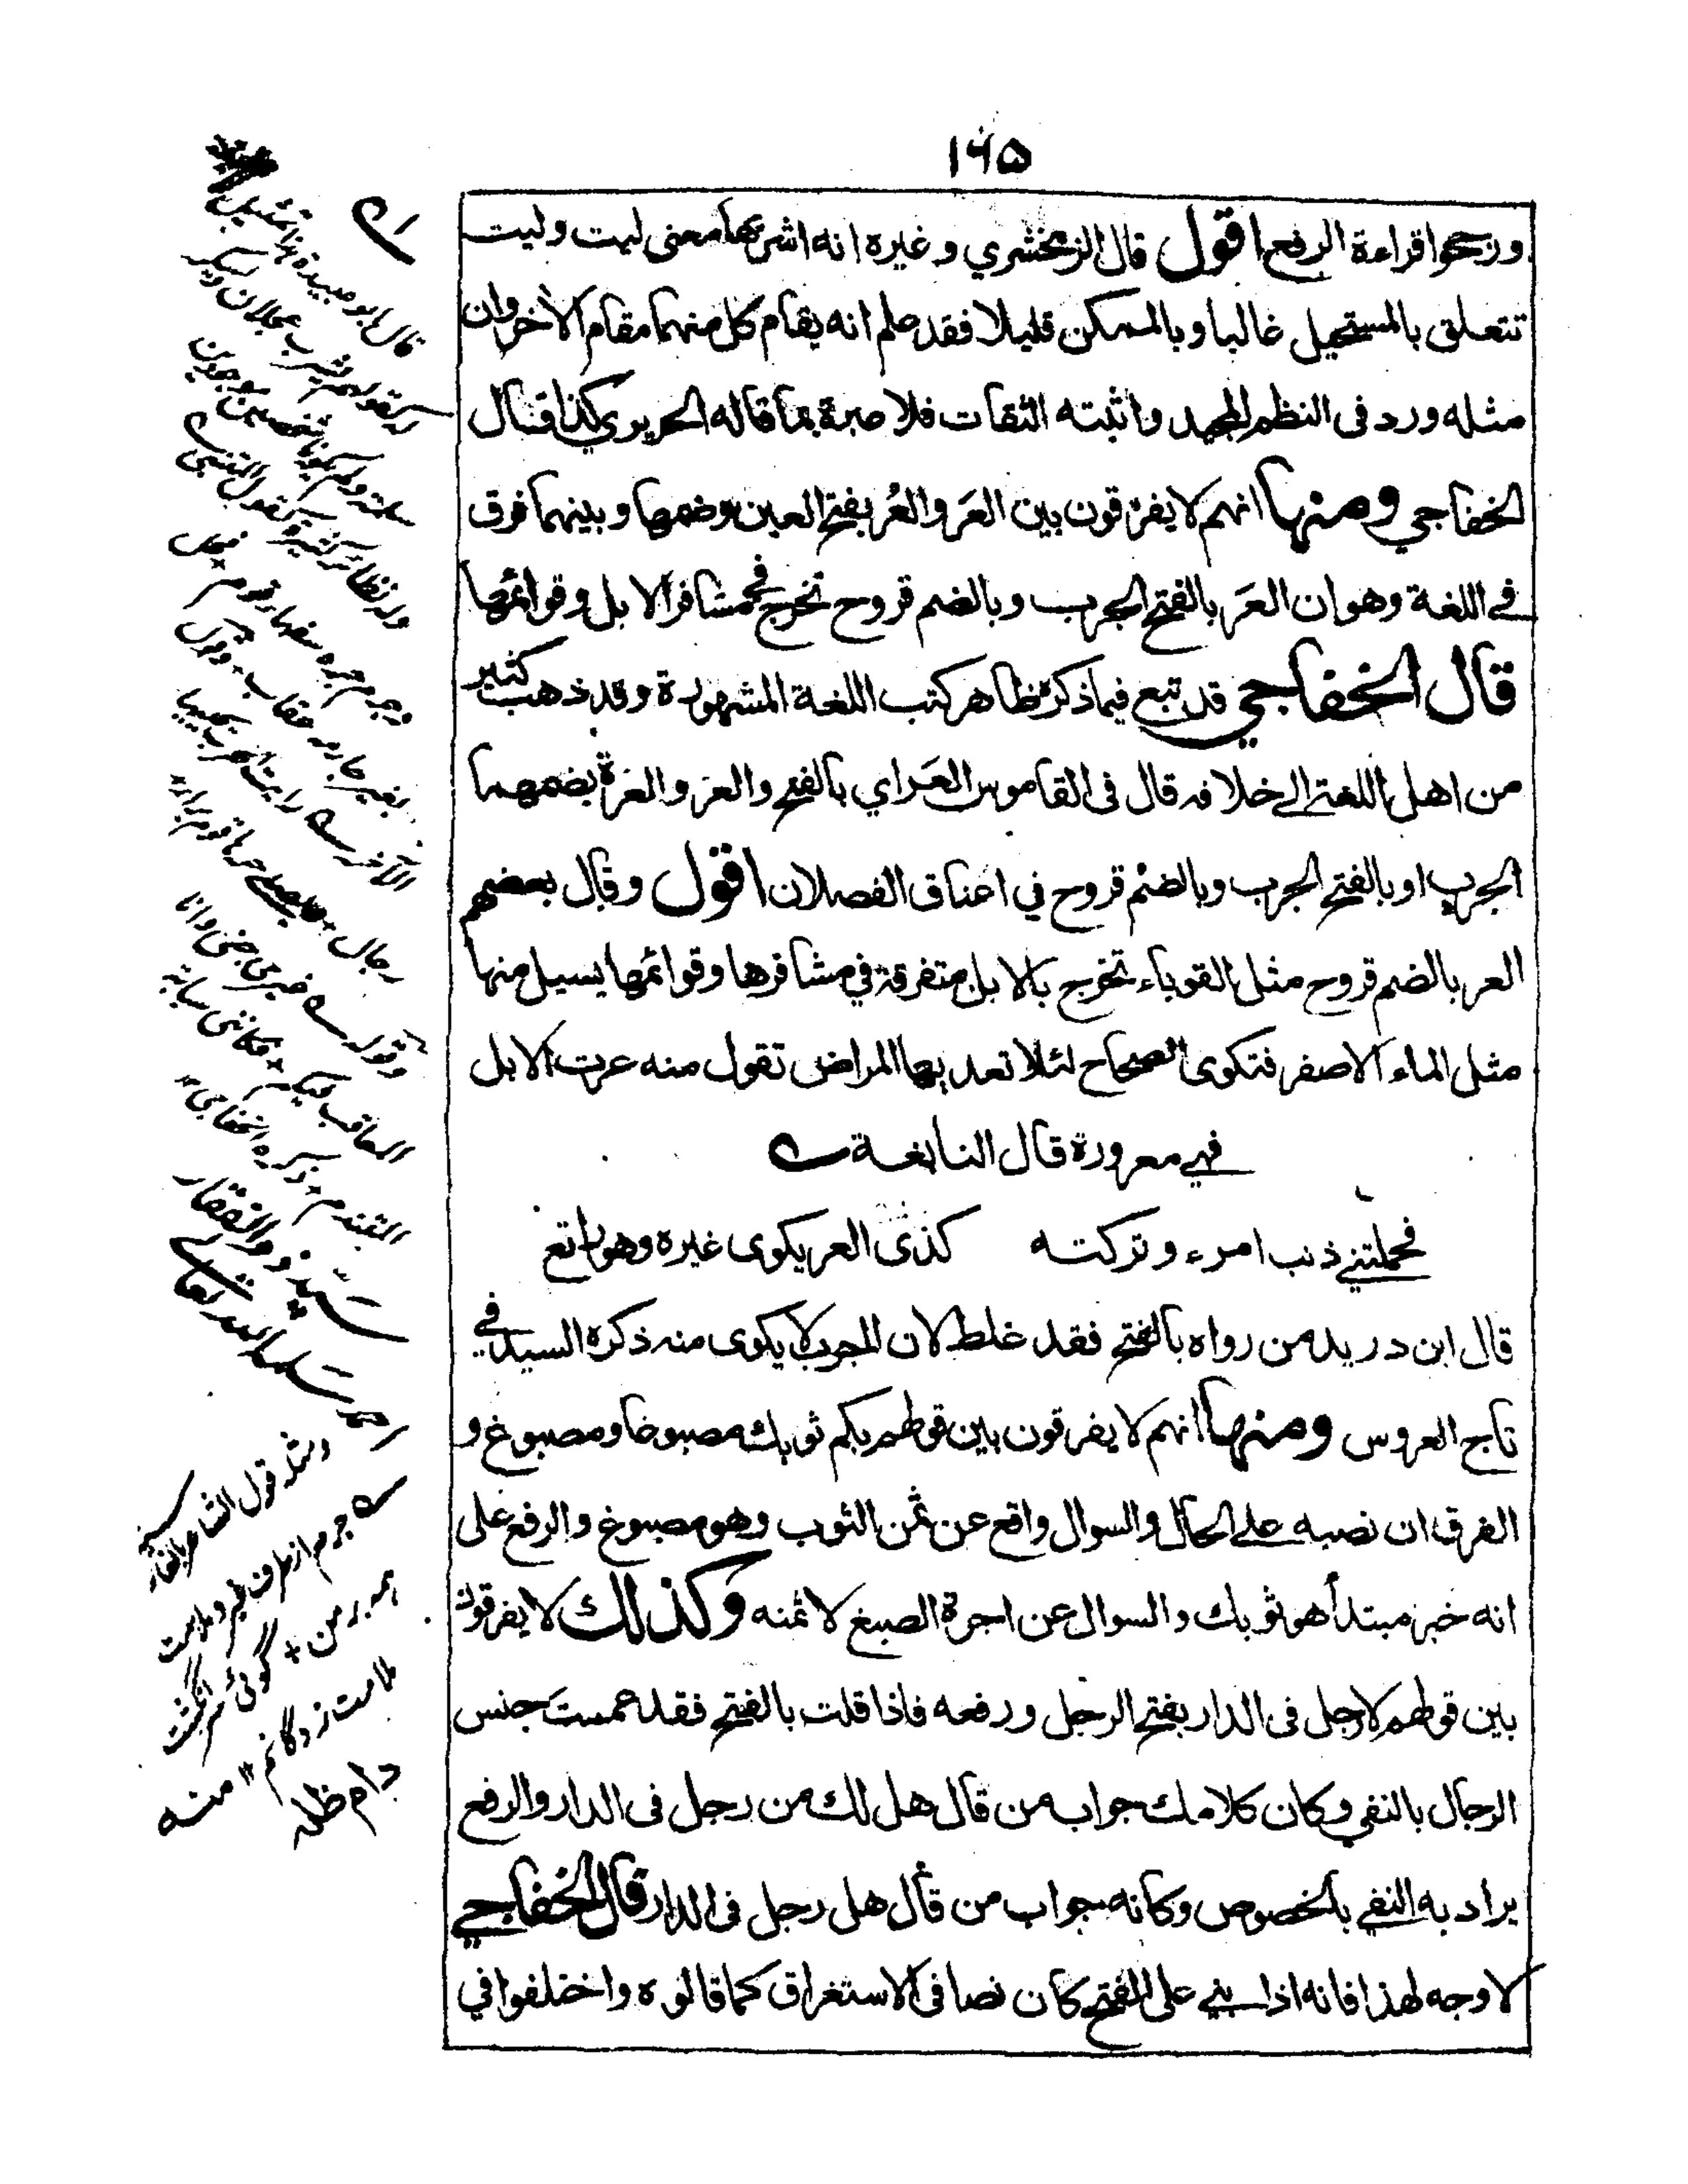 ۱۶۵
ورجحوا قراءة الرفع اقول قال الزمخشري وغيره انه اشربها معنى ليت وليت
تتعلق بالمستحيل غالبا وبالممكن قليلا فقد علم انه يقام كل منهما مقام الآخر وان
مثله ورد فى النظم المجيد واثبته الثقات فلا عبرة بما قاله الحريري كذا قال
الخفاجي ومنها انهم لا يفرقون بين العَر والعُر بفتح العين وضمها وبينهما فرق
في اللغة وهو ان العَر بالفتح الجرب وبالضم قروح تخرج في مشافر الابل وقوائمها
قال الخفاجي قد تبع فيما ذكره ظاهر كتب اللغة المشهورة وقد ذهب كثير
من اهل اللغة الى خلافه قال فى القاموس العَر اي بالفتح والعر والعرة بضمهما
الجرب او بالفتح الجرب وبالضم قروح في اعناق الفصلان اقول وقال بعضهم
العر بالضم قروح مثل القوباء تخرج بالابل متفرقة في مشافرها وقوائمها يسيل منها
مثل الماء الاصفر فتكوى الصحاح لئلا تعديها المراض تقول منه عرت الابل
فهي معرورة قال النابغة
فحملتني ذنب امرء وتركته كذى العر يكوى غيره وهو راتع
قال ابن دريد من رواه بالفتح فقد غلط لان الجرب لا يكوى منه ذكره السيد في
تاج العروس ومنها انهم لا يفرقون بين قولهم بكم ثوبك مصبوغا ومصبوغ و
الفرق ان نصبه على الحال والسوال واقع عن ثمن الثوب وهو مصبوغ والرفع على
انه خبر مبتدأ هو ثوبك والسوال عن اجرة الصبغ لا ثمنه وكذلك لا يفرقون
بين قولهم لا رجل فى الدار بفتح الرجل ورفعه فاذا قلت بالفتح فقد عممت جنس
الرجال بالنفي وكان كلامك جواب من قال هل لك من رجل فى الدار والرفع
يراد به النفي بالخصوص وكانه جواب من قال هل رجل فى الدار قال الخفاجي
لا وجه لهذا فانه اذا بني على الفتح كان نصا فى الاستغراق كما قالوه واختلفوا في
قال ابو عبيدة
رجال
وقوله غيري جنى وانا
المعاقب فيكم فكانني سبابة
المتندم ذكره الخفاجي
سيد ذو الفقار
احمد سلمه الله تعالى
ولله در قول الشاعر
جرم از طرف غير و ملامت
همه بر من گوئى سر انگشت
ملامت زدگانم منه
دام ظله